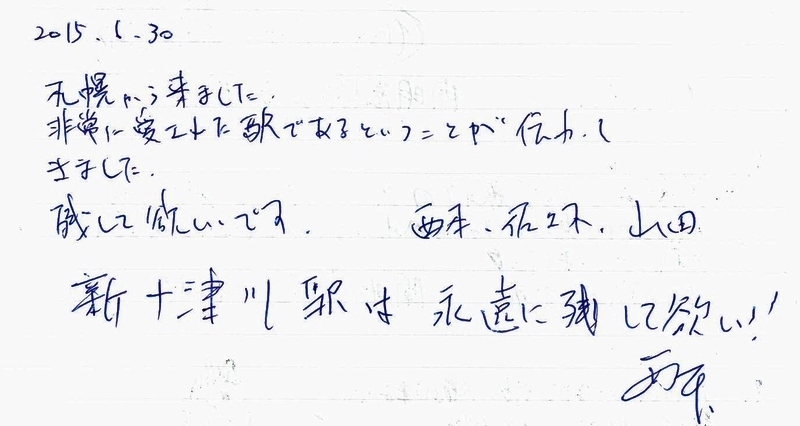 2015.6.30
札幌から来ました.
非常に愛された駅であるということが伝わって
きました.
残して欲しいです. 西本、佐々木、山田
新十津川駅は永遠に残して欲しい!!
西本